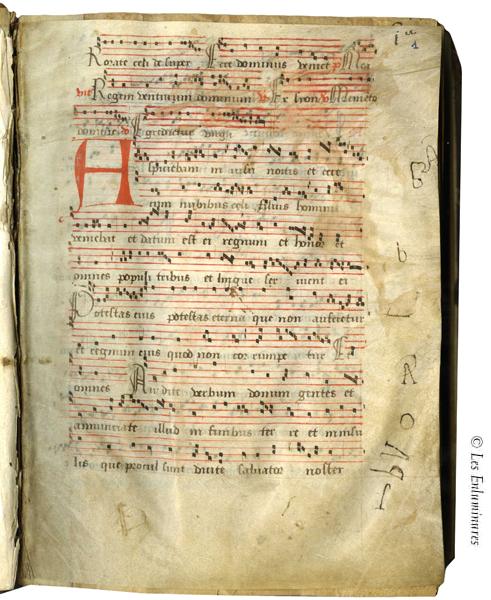 Rorate celi desuper Ecce dominus veniet
Regem venturum dominum Ex syon Memento
domine Egredietur virgo
Aspiciebam in visu noctis et ecce
cum nubibus celi filius homini
veniebat et datum est ei regnum et honor et
omnes populi tribus et lingue ser vient ei
Potestas eius potestas eterna que non auferetur
et regnum eius quod non cor rumpe tur Et
omnes Audite verbum domini gentes et
annunciate illud in finibus ter re et in insu
lis que procul sunt dicite salvator noster
© Les Enluminures